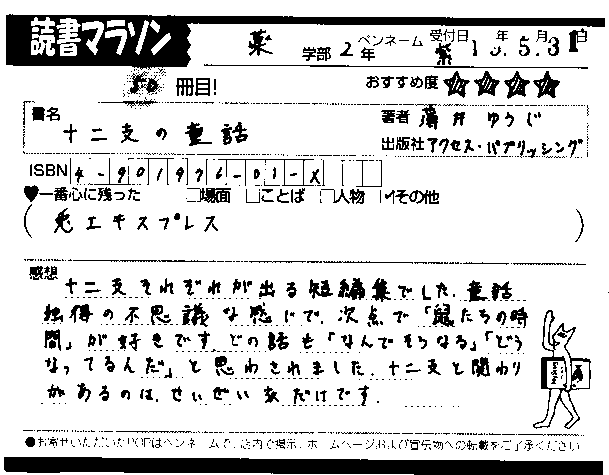 読書マラソン
薬 学部 2年 ペンネーム 紫 受付日 年 5月31日
50 冊目!
おすすめ度 ★★★★
書名 十二支の童話
著者 薄井 ゆうじ
出版社 アクセス・パブリッシング
ISBN 4-901976-01-X
♥一番心に残った □場面 □ことば □人物 ☑その他
(兎エキスプレス)
感想
十二支それぞれが出る短編集でした。童話
独得の不思議な感じで、次点で「鼠たちの時
間」が好きです。どの話も「なんでそうなる」「どう
なってるんだ」と思わされました。十二支と関わり
があるのは、せいぜい 名だけです。
●お寄せいただいたPOPはペンネームで、店内で掲示、ホームページおよび宣伝物への転載をご了承ください